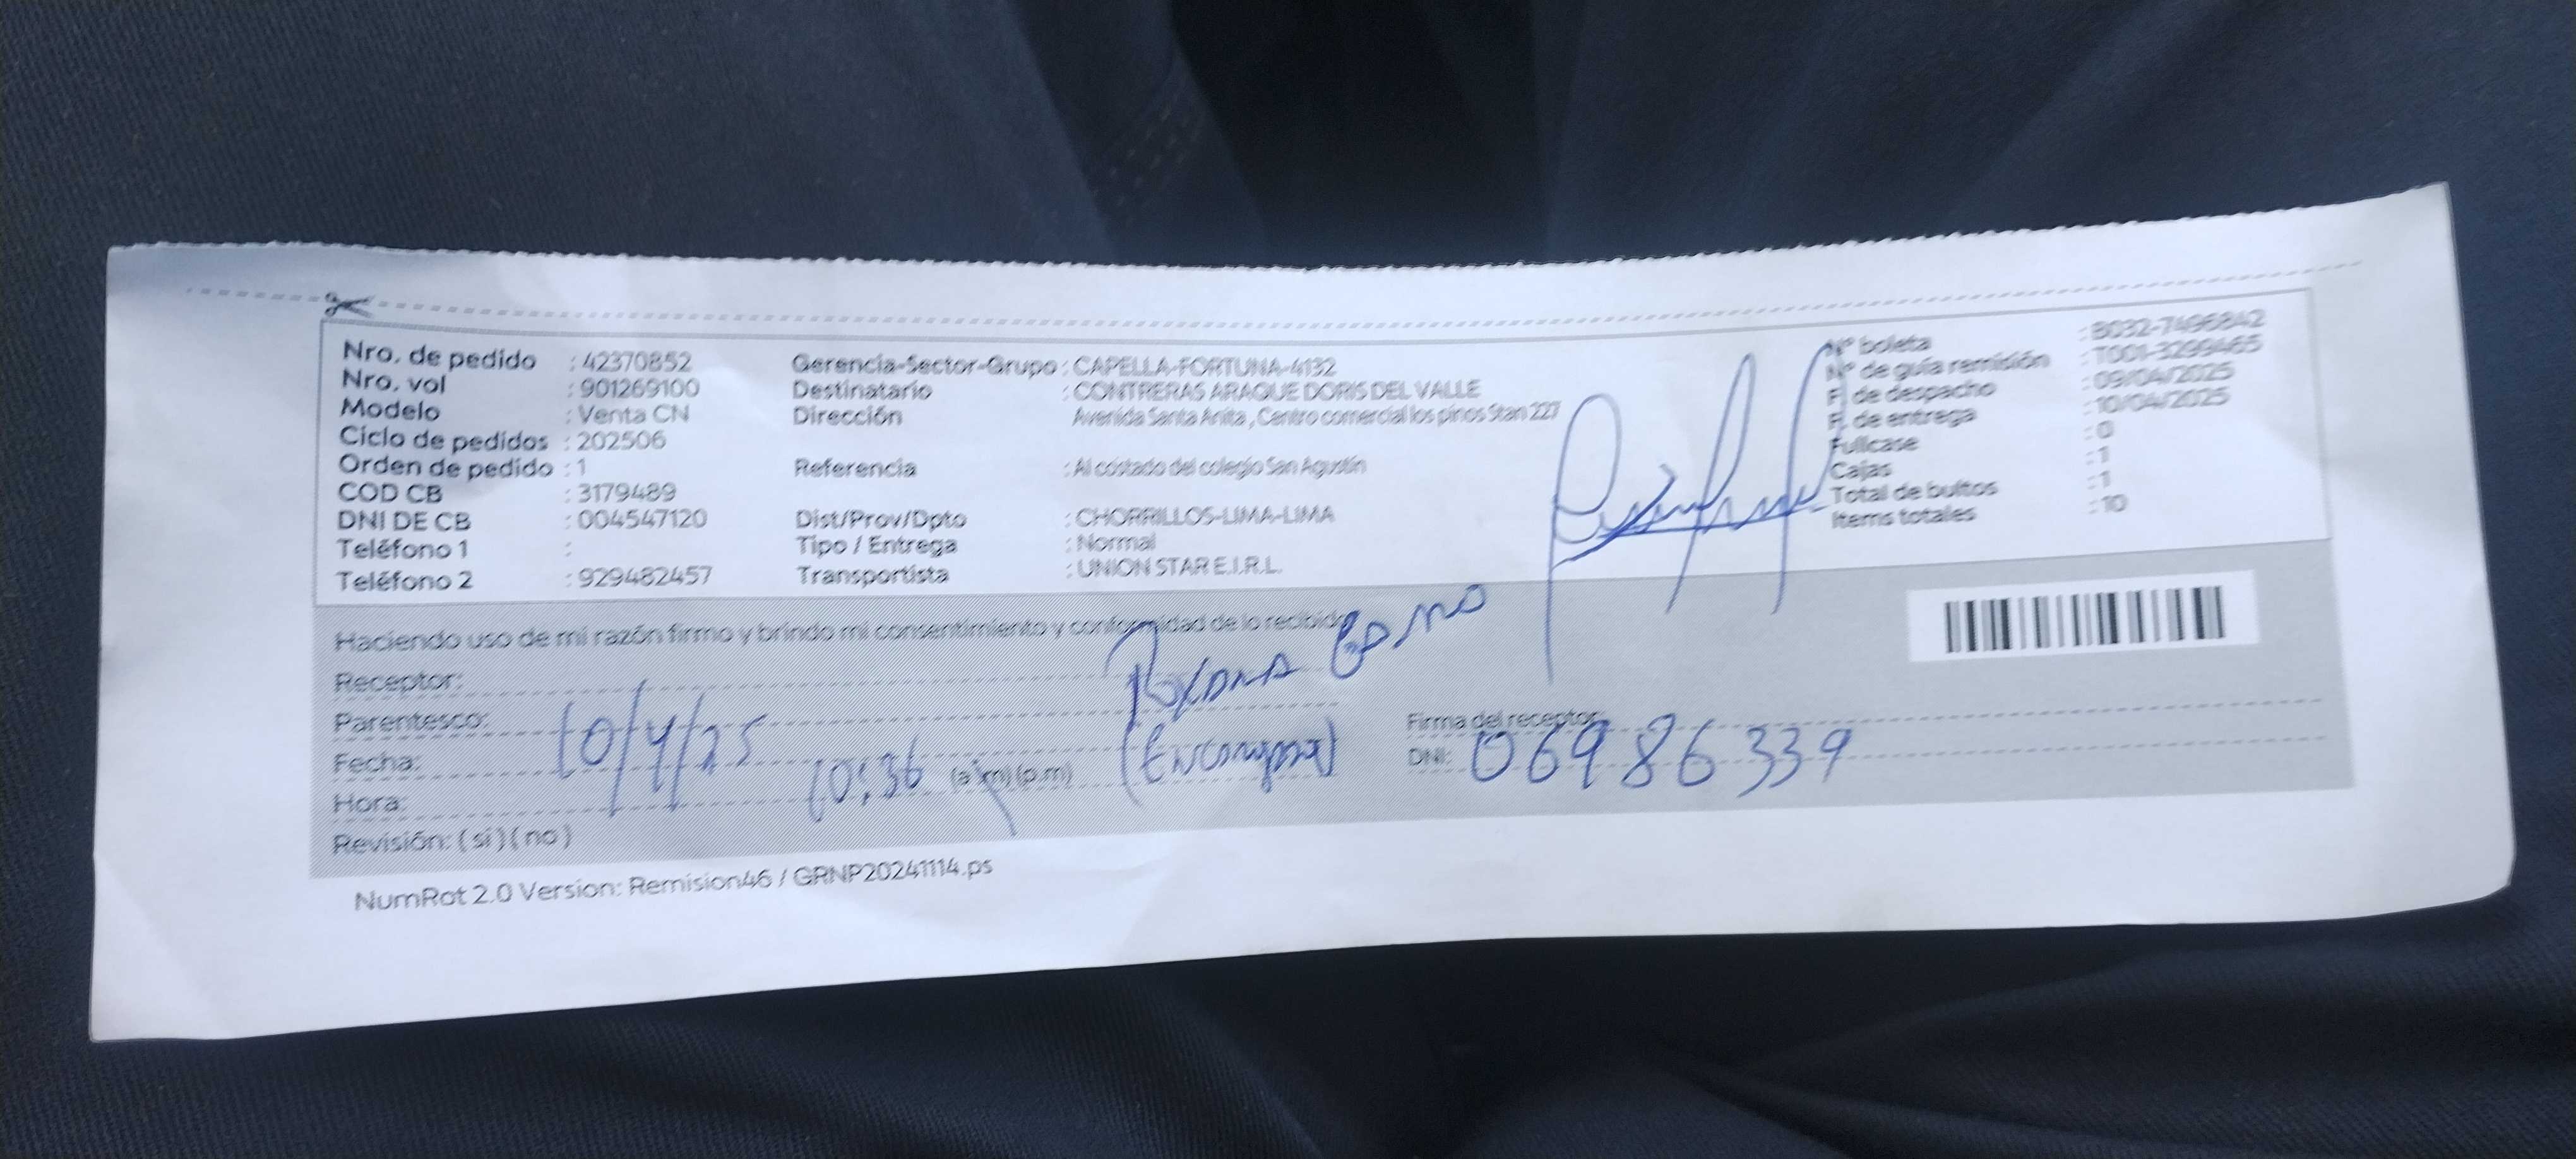 Nro. de pedido : 42370852
Nro. vol : 901269100
Modelo : Venta CN
Ciclo de pedidos : 202506
Orden de pedido : 1
COD CB : 3179489
DNI DE CB : 004547120
Teléfono 1 :
Teléfono 2 : 929482457
Gerencia-Sector-Grupo : CAPELLA-FORTUNA-4132
Destinatario : CONTRERAS ARAQUE DORIS DEL VALLE
Dirección Avenida Santa Anita , Centro comercial los pinos Stan 227
Referencia : Al costado del colegio San Agustín
Dist/Prov/Dpto : CHORRILLOS-LIMA-LIMA
Tipo / Entrega : Normal
Transportista : UNION STAR E.I.R.L.
Nº boleta : B032-7496842
Nº de guía remisión : T001-3299465
F. de despacho : 09/04/2025
F. de entrega : 10/04/2025
Fullcase : 0
Cajas : 1
Total de bultos : 1
Items totales : 10
Haciendo uso de mi razón firmo y brindo mi consentimiento y conformidad de lo recibido
Receptor: Roxana
Parentesco:
Fecha: 10/4/25
Hora: 10:36 (a.m)(p.m)
Revisión: ( si ) ( no )
Firma del receptor:
DNI: 06986339
NumRot 2.0 Version: Remision46 / GRNP20241114.ps